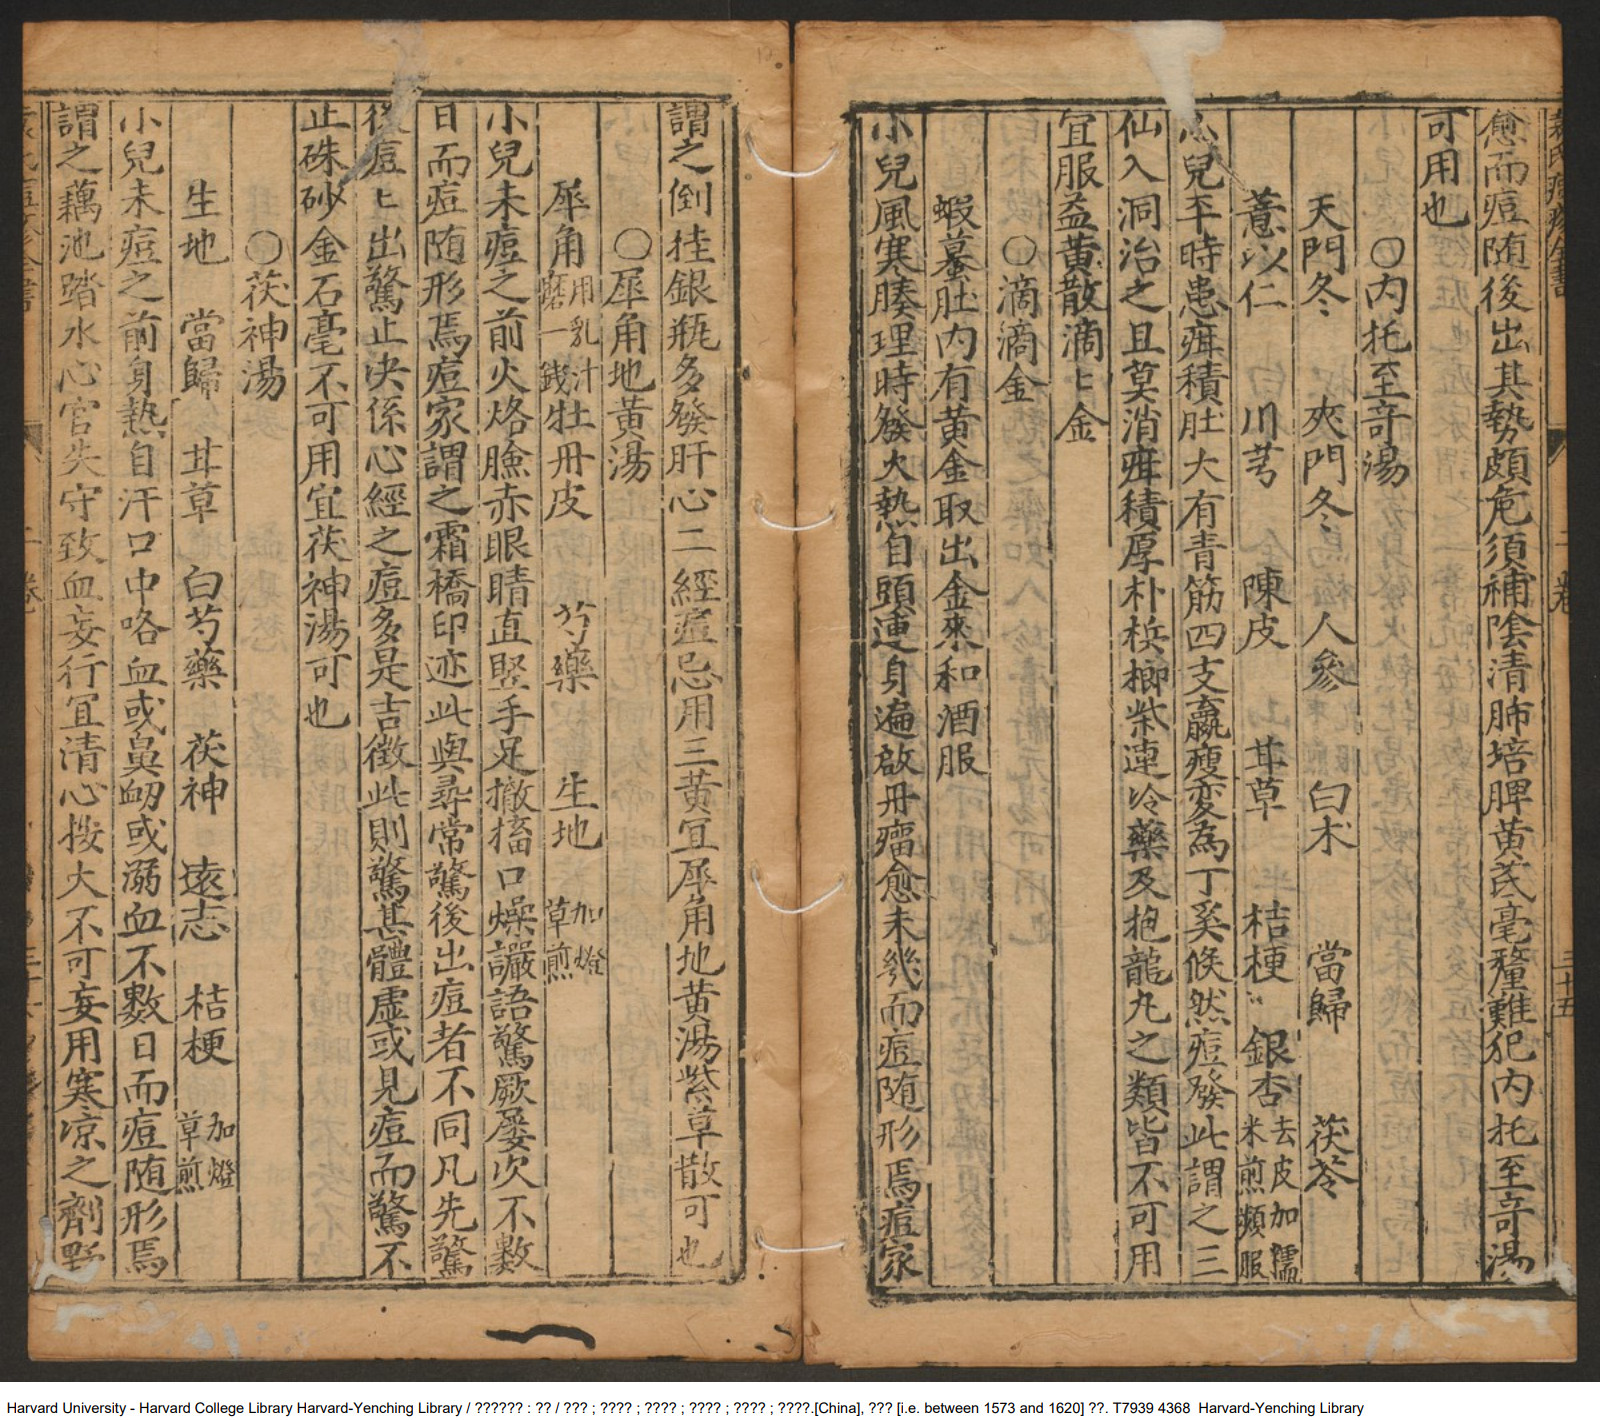 愈而痘随後出其勢頗危須補陰清肺培脾黄芪毫釐難犯内托至竒湯
可用也
〇内托至竒湯
天門冬 夾門冬 人參 白术 當歸 茯苓
薏苡仁 川芎 陳皮 甘草 桔梗 銀杏去皮加糯米煎頻服
小兒平時患疳積肚大有青筋四支羸瘦変為丁奚倏然痘發此謂之三
仙入洞治之且莫消疳積厚朴梹榔柴連冷藥及抱龍丸之類皆不可用
宜服益黄散滴〻金
〇滴滴金
蝦蟇肚内有黄金取出金來和酒服
小兒風寒腠理時發大熱自頭連身遍啟丹瘤愈未幾而痘随形焉痘家
謂之倒挂銀瓶多發肝心二經痘忌用三黄宜犀角地黄湯紫草散可也
〇犀角地黄湯
犀角用乳汁磨一錢 牡丹皮 芍藥 生地 加燈草煎
小兒未痘之前火烙臉赤眼睛直竪手足撤搐口燥讝語驚厥屡次不數
日而痘随形焉痘家謂之霜橋印迹此與尋常驚後出痘者不同凡先驚
後痘〻出驚止决係心經之痘多是吉徴此則驚甚體虚或見痘而驚不
止硃砂金石毫不可用宜茯神湯可也
〇茯神湯
生地 當歸 甘草 白芍藥 茯神 遠志 桔梗 加燈草煎
小兒未痘之前身熱自汗口中咯血或鼻衂或溺血不數日而痘随形焉
謂之藕池踏水心官失守致血妄行宜清心撥火不可妄用寒凉之劑野
Harvard University - Harvard College Library Harvard-Yenching Library / ?????? : ?? / ??? ; ???? ; ???? ; ???? ; ???? ; ????.[China], ??? [i.e. between 1573 and 1620] ??. T7939 4368 Harvard-Yenching Library